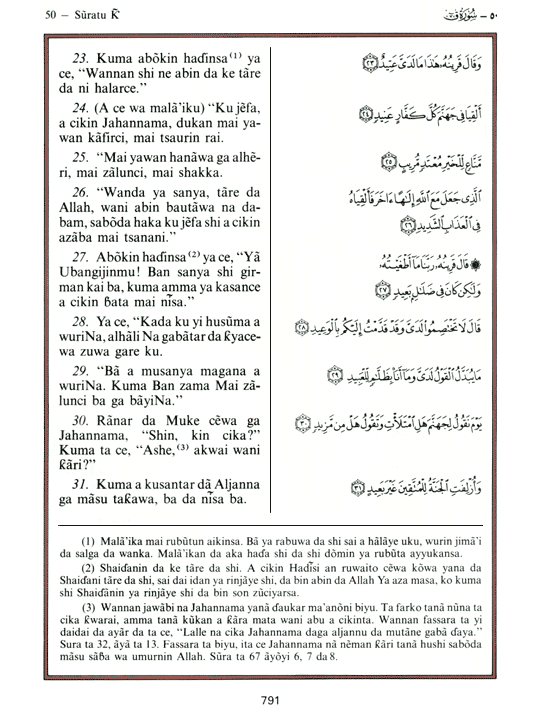 50 — Sūratu Ƙ̄
٥٠ — سُورَةُ قٓ
23. Kuma abōkin haɗinsa(1) ya
ce, “Wannan shi ne abin da ke tāre
da ni halarce.”
24. (A ce wa malā’iku) “Ku jēfa,
a cikin Jahannama, dukan mai ya-
wan kāfirci, mai tsaurin rai.
25. “Mai yawan hanāwa ga alhē-
ri, mai zālunci, mai shakka.
26. “Wanda ya sanya, tāre da
Allah, wani abin bautāwa na da-
bam, sabōda haka ku jēfa shi a cikin
azāba mai tsanani.”
27. Abōkin haɗinsa(2) ya ce, “Yā
Ubangijinmu! Ban sanya shi gir-
man kai ba, kuma amma ya kasance
a cikin ɓata mai nĩsa.”
28. Ya ce, “Kada ku yi husūma a
wuriNa, alhāli Na gabātar da ƙyace-
wa zuwa gare ku.
29. “Bā a musanya magana a
wuriNa. Kuma Ban zama Mai zā-
lunci ba ga bāyiNa.”
30. Rānar da Muke cēwa ga
Jahannama, “Shin, kin cika?”
Kuma ta ce, “Ashe,(3) akwai wani
ƙāri?”
31. Kuma a kusantar dā Aljanna
ga māsu taƙawa, ba da nĩsa ba.
وَقَالَ قَرِينُهُۥ هَٰذَا مَا لَدَىَّ عَتِيدٌ ﴿٢٣﴾
أَلْقِيَا فِي جَهَنَّمَ كُلَّ كَفَّارٍ عَنِيدٍ ﴿٢٤﴾
مَّنَّاعٍ لِّلْخَيْرِ مُعْتَدٍ مُّرِيبٍ ﴿٢٥﴾
ٱلَّذِي جَعَلَ مَعَ ٱللَّهِ إِلَٰهًا ءَاخَرَ فَأَلْقِيَاهُ
فِي ٱلْعَذَابِ ٱلشَّدِيدِ ﴿٢٦﴾
۞ قَالَ قَرِينُهُۥ رَبَّنَا مَآ أَطْغَيْتُهُۥ
وَلَٰكِن كَانَ فِي ضَلَٰلٍۭ بَعِيدٍ ﴿٢٧﴾
قَالَ لَا تَخْتَصِمُوا۟ لَدَىَّ وَقَدْ قَدَّمْتُ إِلَيْكُم بِٱلْوَعِيدِ ﴿٢٨﴾
مَا يُبَدَّلُ ٱلْقَوْلُ لَدَىَّ وَمَآ أَنَا۠ بِظَلَّٰمٍ لِّلْعَبِيدِ ﴿٢٩﴾
يَوْمَ نَقُولُ لِجَهَنَّمَ هَلِ ٱمْتَلَأْتِ وَتَقُولُ هَلْ مِن مَّزِيدٍ ﴿٣٠﴾
وَأُزْلِفَتِ ٱلْجَنَّةُ لِلْمُتَّقِينَ غَيْرَ بَعِيدٍ ﴿٣١﴾
(1) Malā’ika mai rubūtun aikinsa. Bā ya rabuwa da shi sai a hālāye uku, wurin jimā’i
da salga da wanka. Malā’ikan da aka haɗa shi da shi dōmin ya rubūta ayyukansa.
(2) Shaiɗanin da ke tāre da shi. A cikin Hadĩsi an ruwaito cēwa kōwa yana da
Shaiɗani tāre da shi, sai dai idan ya rinjāye shi, da bin abin da Allah Ya aza masa, ko kuma
shi Shaiɗānin ya rinjāye shi da bin son zūciyarsa.
(3) Wannan jawābi na Jahannama yanā ɗaukar ma’anōni biyu. Ta farko tanā nūna ta
cika ƙwarai, amma tanā kūkan a ƙāra mata wani abu a cikinta. Wannan fassara ta yi
daidai da ayār da ta ce, “Lalle na cika Jahannama daga aljannu da mutāne gabā ɗaya.”
Sura ta 32, āyā ta 13. Fassara ta biyu, ita ce Jahannamā nā nēman ƙāri tanā hushi sabōda
māsu sāɓa wa umurnin Allah. Sūra ta 67 āyōyi 6, 7 da 8.
791